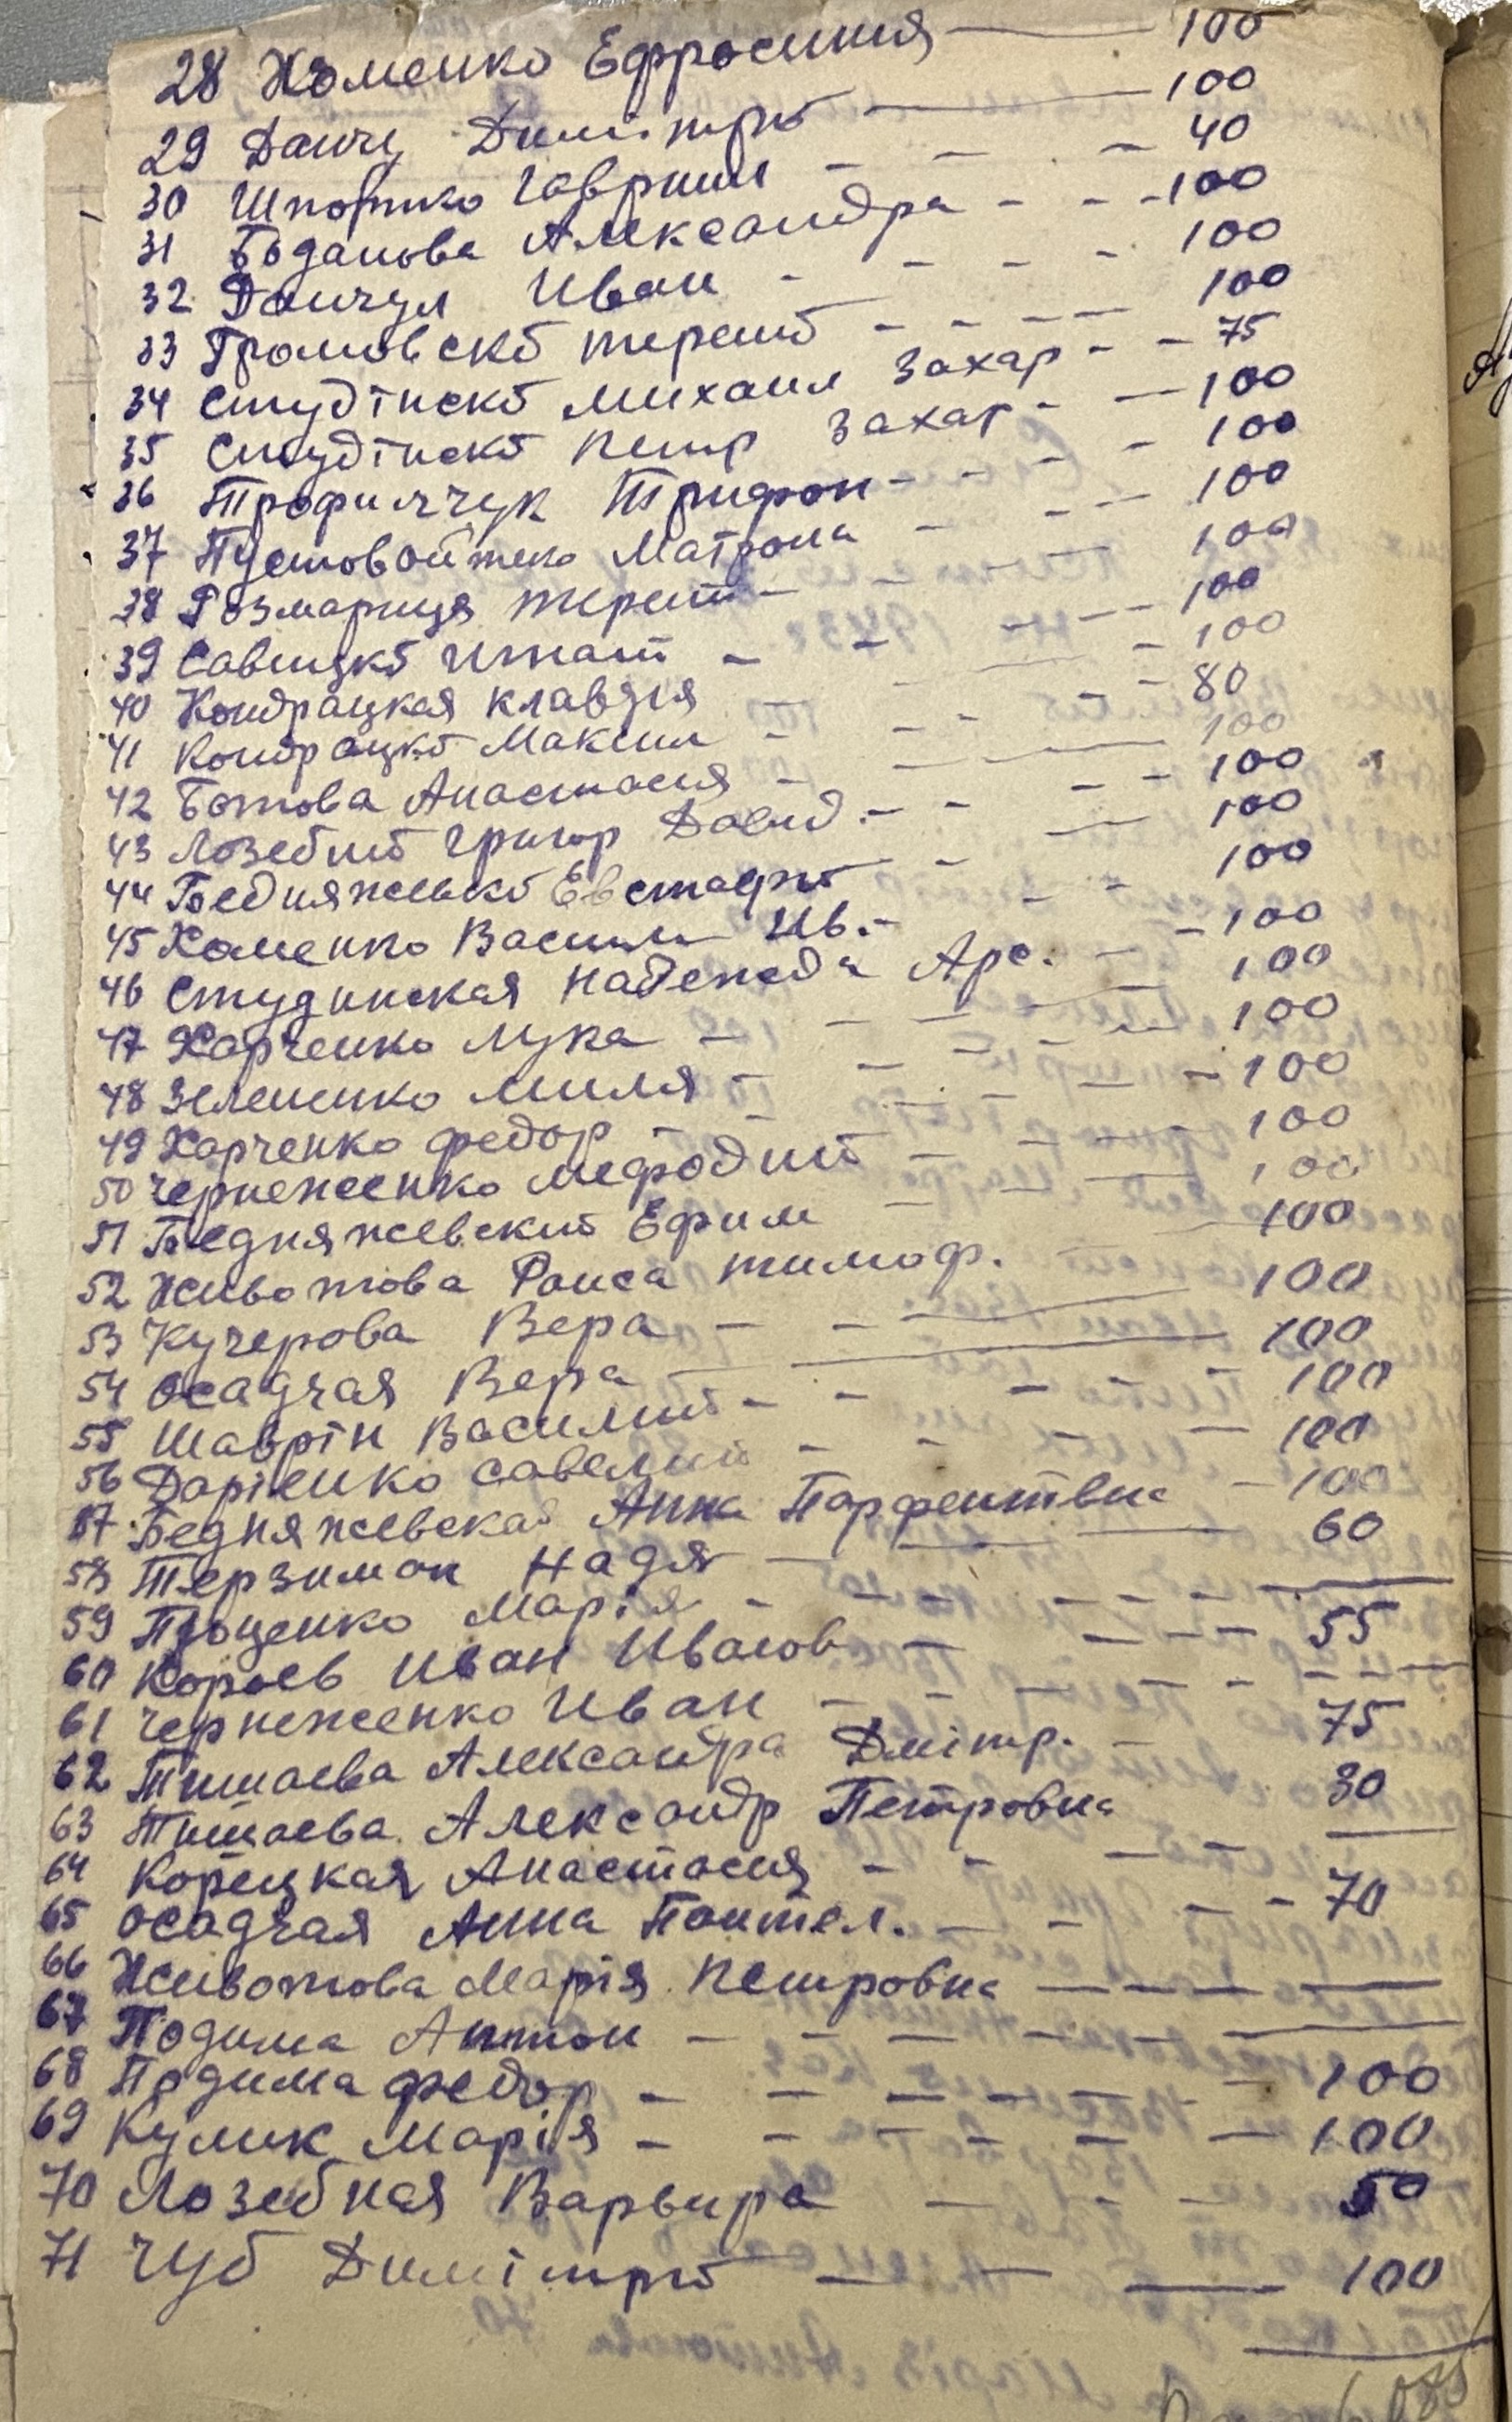 28 Хоменко Ефросиния — 100
29 Данчу Димітрий — 100
30 Шпотко Гавриил - - - 40
31 Боданова Александра - - - 100
32 Данчул Иван - - - - 100
33 Громовский терент - - - - 100
34 Студінский Михаил Захар - - 75
35 Студінский Петр Захар - — 100
36 Трофимчук Трифон - - - - 100
37 Пустовойтенко Матрона - - - 100
38 Розмарица терент - 100
39 Савицкий Игнат - - - - 100
40 Кондрацкая Клавдия - 100
41 Кондрацкий Максим - - - - - 80
42 Ботова Анастасия - — 100
43 Лозебний Григор Давид. - - - - 100
44 Бедняжевский Евстафий - — 100
45 Хоменко Василий Ив. - - - 100
46 Студинская Надежда Арс. - - 100
47 Харченко Лука - - - 100
48 Зелененко Миля - - - - 100
49 Харченко Федор - - - - - 100
50 Чернеженко Мефодий - - - - 100
51 Бедняжевский Ефим - - - 100
52 Животова Раиса тимоф. — 100
53 Кучерова Вера - - — 100
54 Осадчая Вера — 100
55 Шаврін Василий - - - - - 100
56 Дарієнко Савелий - - - - 100
57 Бедняжевская Анна Парфентівна - 100
58 Терзиман Надя - — 60
59 Проценко Марія - - - - - - —
60 Короев Иван Иванов - - - - 55
61 Чернеженко Иван - - - - - - -
62 Тишаева Александра Дмітр. - 75
63 Тишаева Александр Петровна 30
64 Корецкая Анастасия - - - - —
65 Осадчая Анна Пантел. - - - - 70
66 Животова Марія Петровна — — — —
67 Подима Антон - - - - - - —
68 Подима Федор - - - - - - 100
69 Кулик Марія - - - - - - 100
70 Лозебная Варвара — - - 50
71 Чуб Димітрий — — — 100